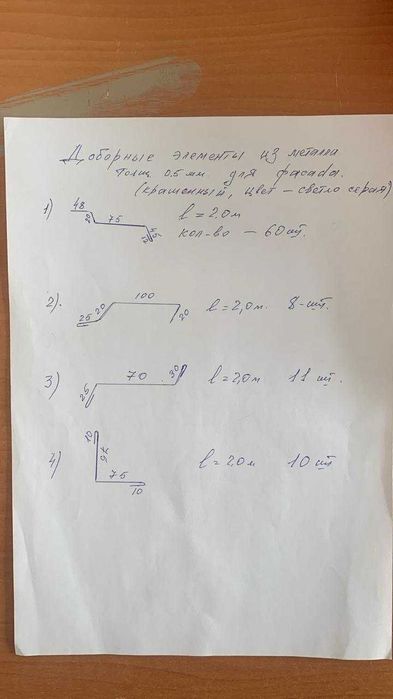 Доборные элементы из металла
толщ. 0.5 мм. для фасада.
(крашенный, цвет – светло серая)
1) 48 20 75 l = 2.0м
кол-во – 60 шт.
2). 25 20 100 20 l = 2,0 м. 8-шт.
3) 25 70 30 l = 2,0 м. 11 шт.
4) 10 75 10 l = 2.0м 10 шт